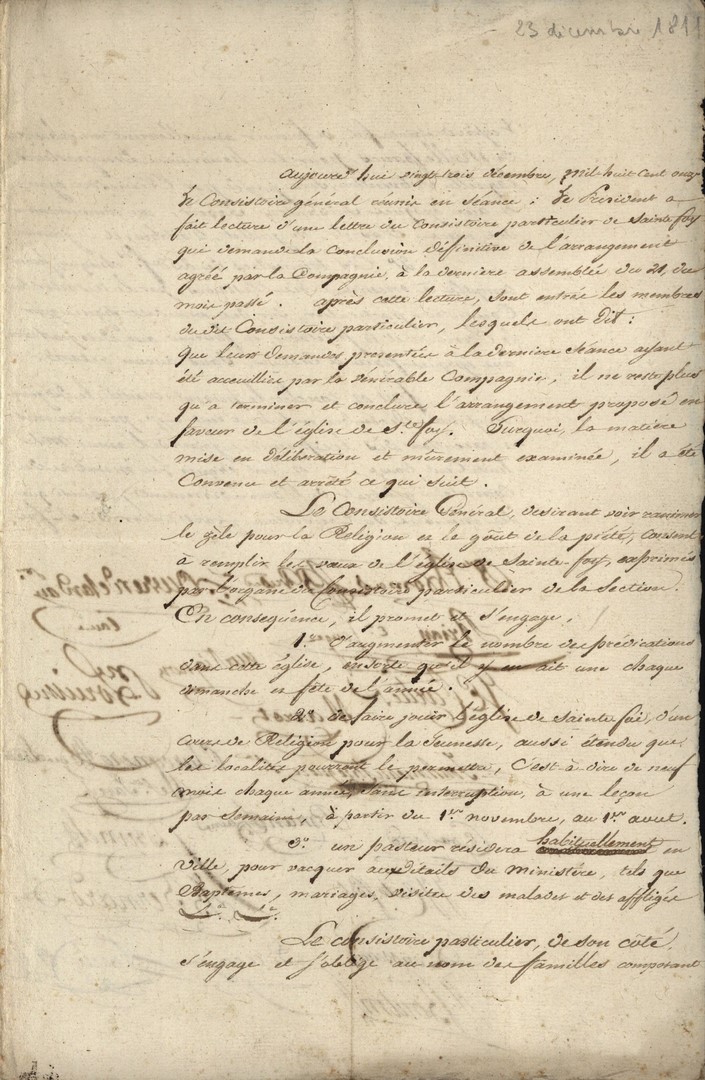 23 décembre 1811
aujourd'hui vingt trois décembre, mil huit cent onze
le Consistoire général réuni en séance ; le Président a
fait lecture d'une lettre du Consistoire particulier de Sainte foy
qui demande la conclusion définitive de l'arrangement
agréé par la Compagnie, à la dernière assemblée du 21, du
mois passé. après cette lecture, sont entrés les membres
du dit Consistoire particulier, lesquels ont dit :
que leurs demandes presentées à la dernière séance ayant
été acceuillies par la vénérable Compagnie, il ne reste plus
qu'à terminer et conclure l'arrangement proposé en
faveur de l'église de Ste foy. Surquoi, la matière
mise en délibération et mûrement examinée, il a été
Convenu et arrêté ce qui suit.
Le Consistoire Général, desirant voir ranimer
le zèle pour la Religion et le goût de la piété, consent
à remplir les vœux de l'église de Sainte-foy, exprimés
par l'organe du Consistoire particulier de la Section.
En consequénce, il promet et s'engage,
1o. D'augmenter le nombre des prédications
dans cette église, ensorte qu'il y en ait une chaque
dimanche et fête de l'année.
2o. de faire jouir l'église de Sainte foi, d'un
cours de Religion pour la jeunesse, aussi étendu que
les localités pourront le permettre, C'est à dire de neuf
mois chaque année, sans interruption, à une leçon
par semaine, à partir du 1er novembre, au 1er aout.
3o. un pasteur residera habituellement en
Ville, pour vacquer aux détails du Ministère, tels que
Baptêmes, mariages, visites des malades et des affligés
&a. &a.
Le consistoire particulier, de son côté,
s'engage et s'oblige au nom des familles composant